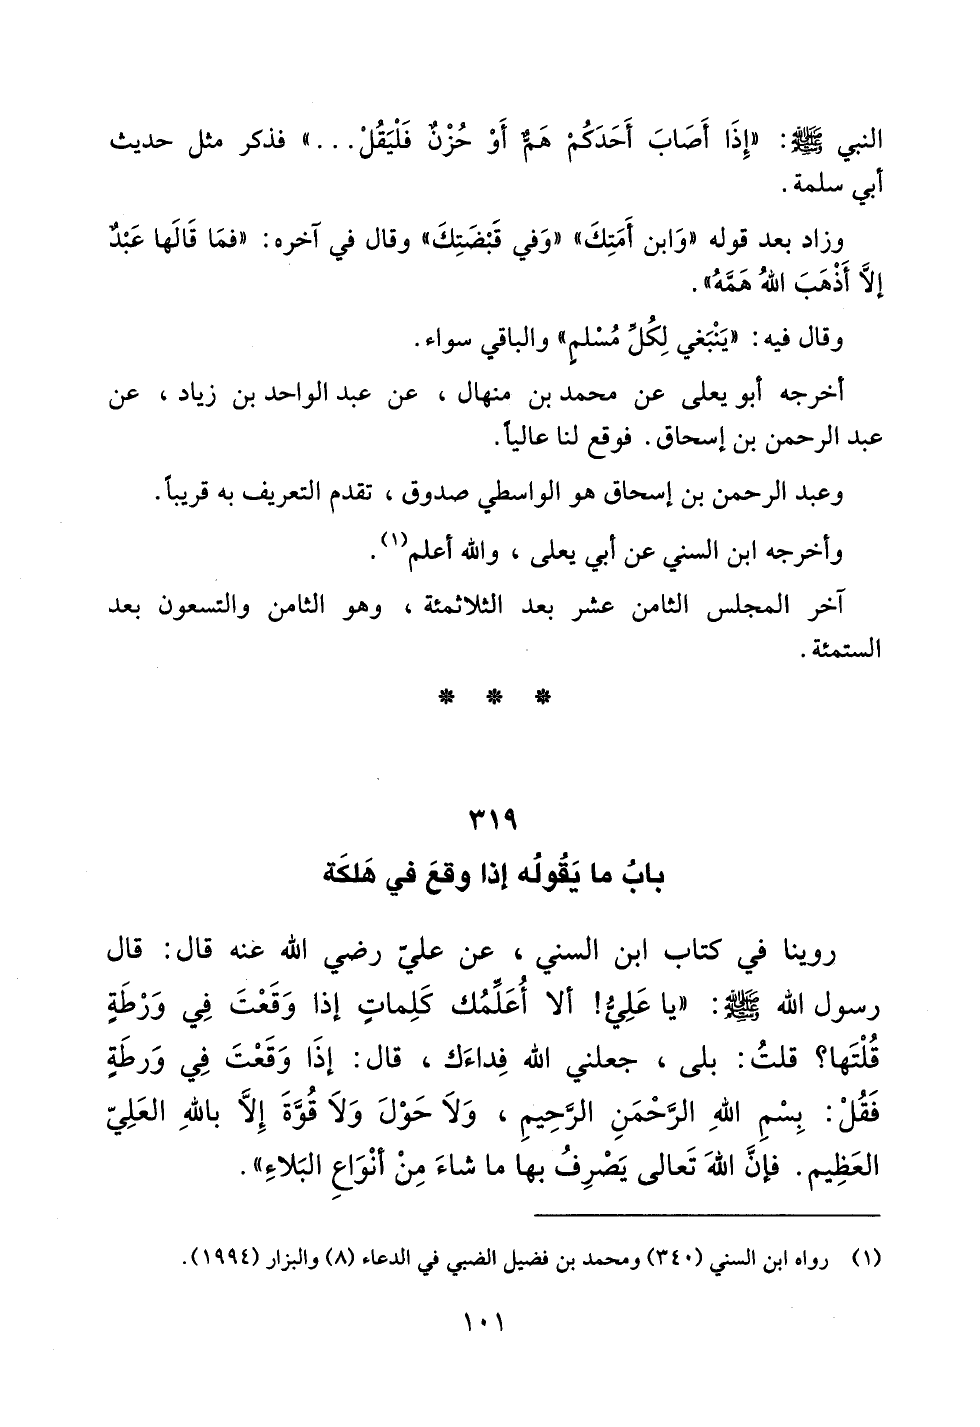 النبي ﷺ: «إِذَا أَصَابَ أَحَدَكُمْ هَمٌّ أَوْ حُزْنٌ فَلْيَقُلْ...» فذكر مثل حديث
أبي سلمة.
وزاد بعد قوله «وَابن أَمَتِكَ» «وَفي قَبْضَتِكَ» وقال في آخره: «فمَا قَالَها عَبْدٌ
إلاَّ أَذْهَبَ اللهُ هَمَّهُ».
وقال فيه: «يَنْبَغي لِكُلِّ مُسْلمٍ» والباقي سواء.
أخرجه أبو يعلى عن محمد بن منهال، عن عبد الواحد بن زياد، عن
عبد الرحمن بن إسحاق. فوقع لنا عالياً.
وعبد الرحمن بن إسحاق هو الواسطي صدوق، تقدم التعريف به قريباً.
وأخرجه ابن السني عن أبي يعلى، والله أعلم(١).
آخر المجلس الثامن عشر بعد الثلاثمئة، وهو الثامن والتسعون بعد
الستمئة.
* * *
٣١٩
بابُ ما يَقُولُه إذا وقعَ في هَلكَة
روينا في كتاب ابن السني، عن عليّ رضي الله عنه قال: قال
رسول الله ﷺ: «يا عَلِيُّ! ألا أُعَلِّمُك كَلِماتٍ إذا وَقَعْتَ فِي وَرْطَةٍ
قُلْتَها؟ قلتُ: بلى، جعلني الله فِداءَك، قال: إذَا وَقَعْتَ فِي وَرطَةٍ
فَقُلْ: بِسْمِ اللهِ الرَّحْمَنِ الرَّحِيمِ، وَلاَ حَوْلَ وَلاَ قُوَّةَ إلاَّ باللهِ العَلِيّ
العَظِيم. فإنَّ اللهَ تَعالى يَصْرِفُ بها ما شاءَ مِنْ أنْوَاعِ البَلاءِ».
(١) رواه ابن السني (٣٤٠) ومحمد بن فضيل الضبي في الدعاء (٨) والبزار (١٩٩٤).
١٠١